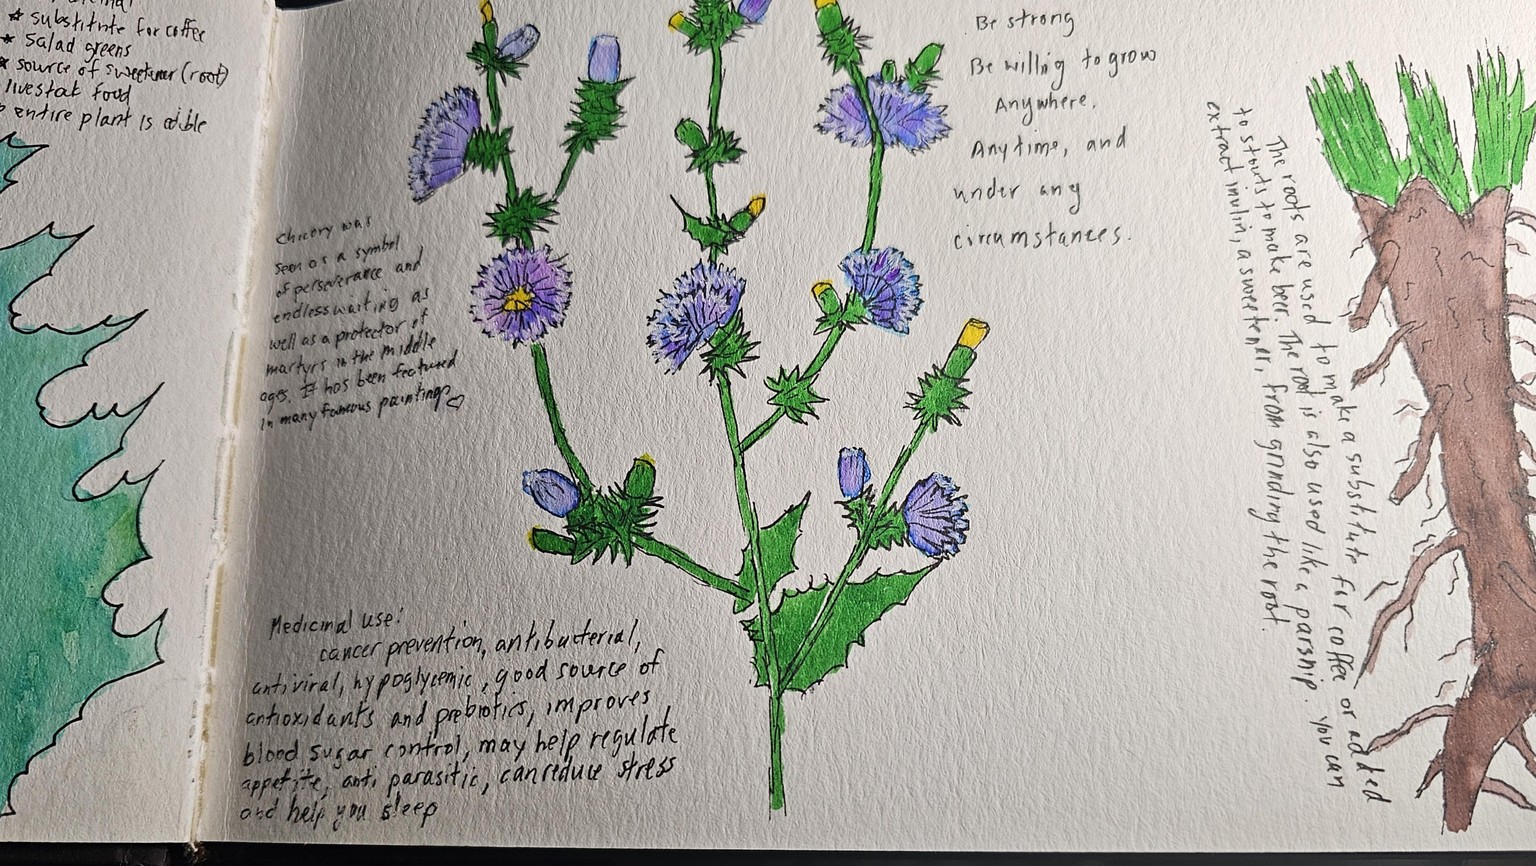 * substitute for coffee
* Salad greens
* source of sweetener (root)
livestock food
entire plant is edible
Chicory was
seen as a symbol
of perserverance and
endless waiting as
well as a protector of
martyrs in the middle
ages. It has been featured
in many famous paintings ♡
Medicinal use:
cancer prevention, antibacterial,
antiviral, hypoglycemic, good source of
antioxidants and prebiotics, improves
blood sugar control, may help regulate
appetite, anti parasitic, can reduce stress
and help you sleep
Be strong
Be willing to grow
Anywhere,
Anytime, and
under any
circumstances.
The roots are used to make a substitute for coffee or added
to stouts to make beer. The root is also used like a parsnip. You can
extract inulin, a sweetener, from grinding the root.